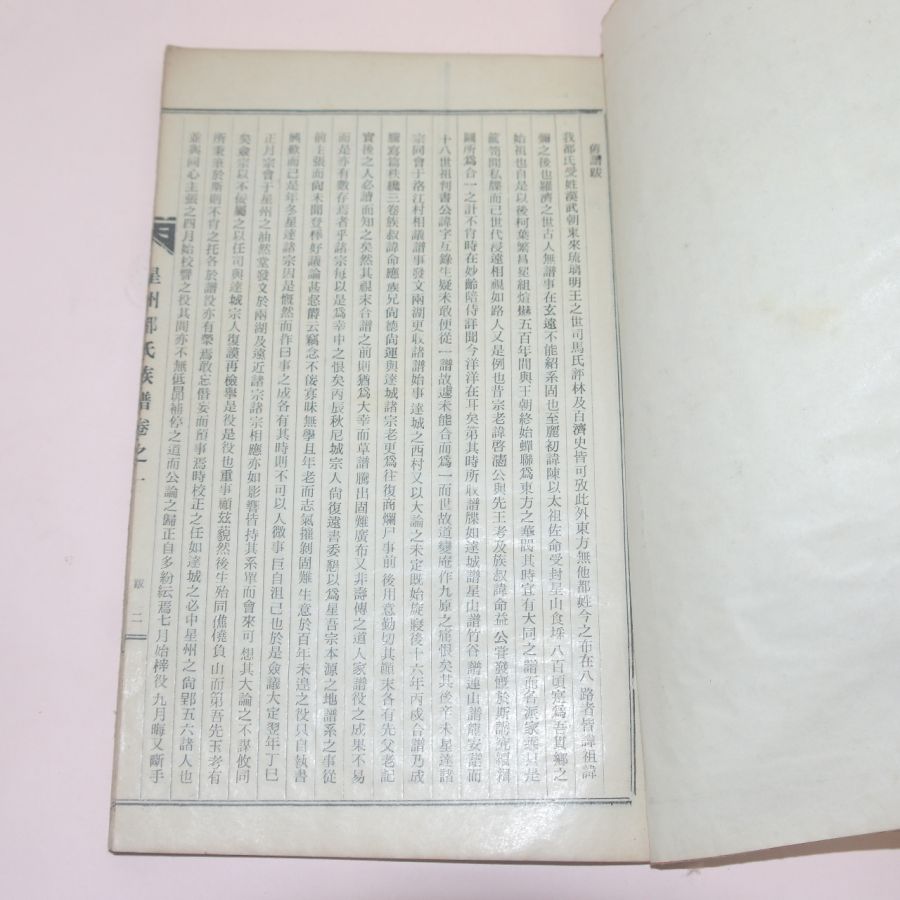 舊譜跋
我都氏受姓漢武朝東來琉璃明王之世司馬氏評林及百濟史皆可攷此外東方無他都姓今之布在八路者皆諱祖諱
彌之後也羅濟之世古人無譜事在玄遠不能紹系固也至麗初諱陳以太祖佐命受封星山食埰八百頃寔爲吾貫鄕之
始祖也自是以後柯葉繁昌冕組煊爀五百年間與王朝終始蟬聯爲東方之華閥其時宜有大同之譜而各派家乘只是
篋笥間私牒而已世代浸遠相視如路人又是例也昔宗老諱啓 公與先王考及族叔諱命益公嘗慨於斯
圖所爲合一之計不肯時在妙齡陪侍詳聞今洋洋在耳矣第其時所收譜牒如達城譜星山譜竹谷譜連山譜龍安譜而
十八世祖判書公諱字互錄生疑未敢便從一譜故遽未能合而爲一而世故道變庵作九原之痛恨矣其後辛未星達諸
宗同會于洛江村相議譜事發文兩湖更收諸譜始事達城之西村又以大論之未定旣始旋寢後十六年丙戌合譜乃成
騰寫篇秩纔三卷族叔諱命應族兄尙德尙運與達城諸宗老更爲往復商爛尸事前後用意勤切其顚末各有先父老記
實後之人必讀而知之矣然其視末合譜之前則猶爲大幸而草譜騰出固難廣布又非壽傳之道人家譜役之成果不易
而是亦有數存焉者乎諸宗每以是爲幸中之恨矣丙辰秋尼城宗人尙復遠書委懇以爲星吾宗本源之地譜系之事從
前主張而尙未聞登梓好議論甚慫 云竊念不侫寡昧無學且年老而志氣摧剝固難生意於百年未遑之役只自執書
興歎而已是年冬星達諸宗因是慨然而作曰事之成各有其時則不可以人微事巨自沮已也於是僉議大定翌年丁巳
正月宗會于星州之油然堂發文於兩湖及遠近諸宗諸宗相應亦如影響皆持其系單而會來可想其大論之不謀攸同
矣僉宗以不侫屬之以任司與達城宗人復謨再檢擧是役是役也重事顧玆藐然後生殆同僬僥負山而第吾先王考有
所秉筆於斯則不肯之托各於譜役亦有榮焉敢忘僭妄而預事焉時校正之任如達城之必中星州之尙郢五六諸人也
並與同心主張之四月始校讐之役其間亦不無低昻補停之道而公論之歸正自多紛紜焉七月始梓役九月晦又斷手
星州都氏族譜卷之一
跋 二